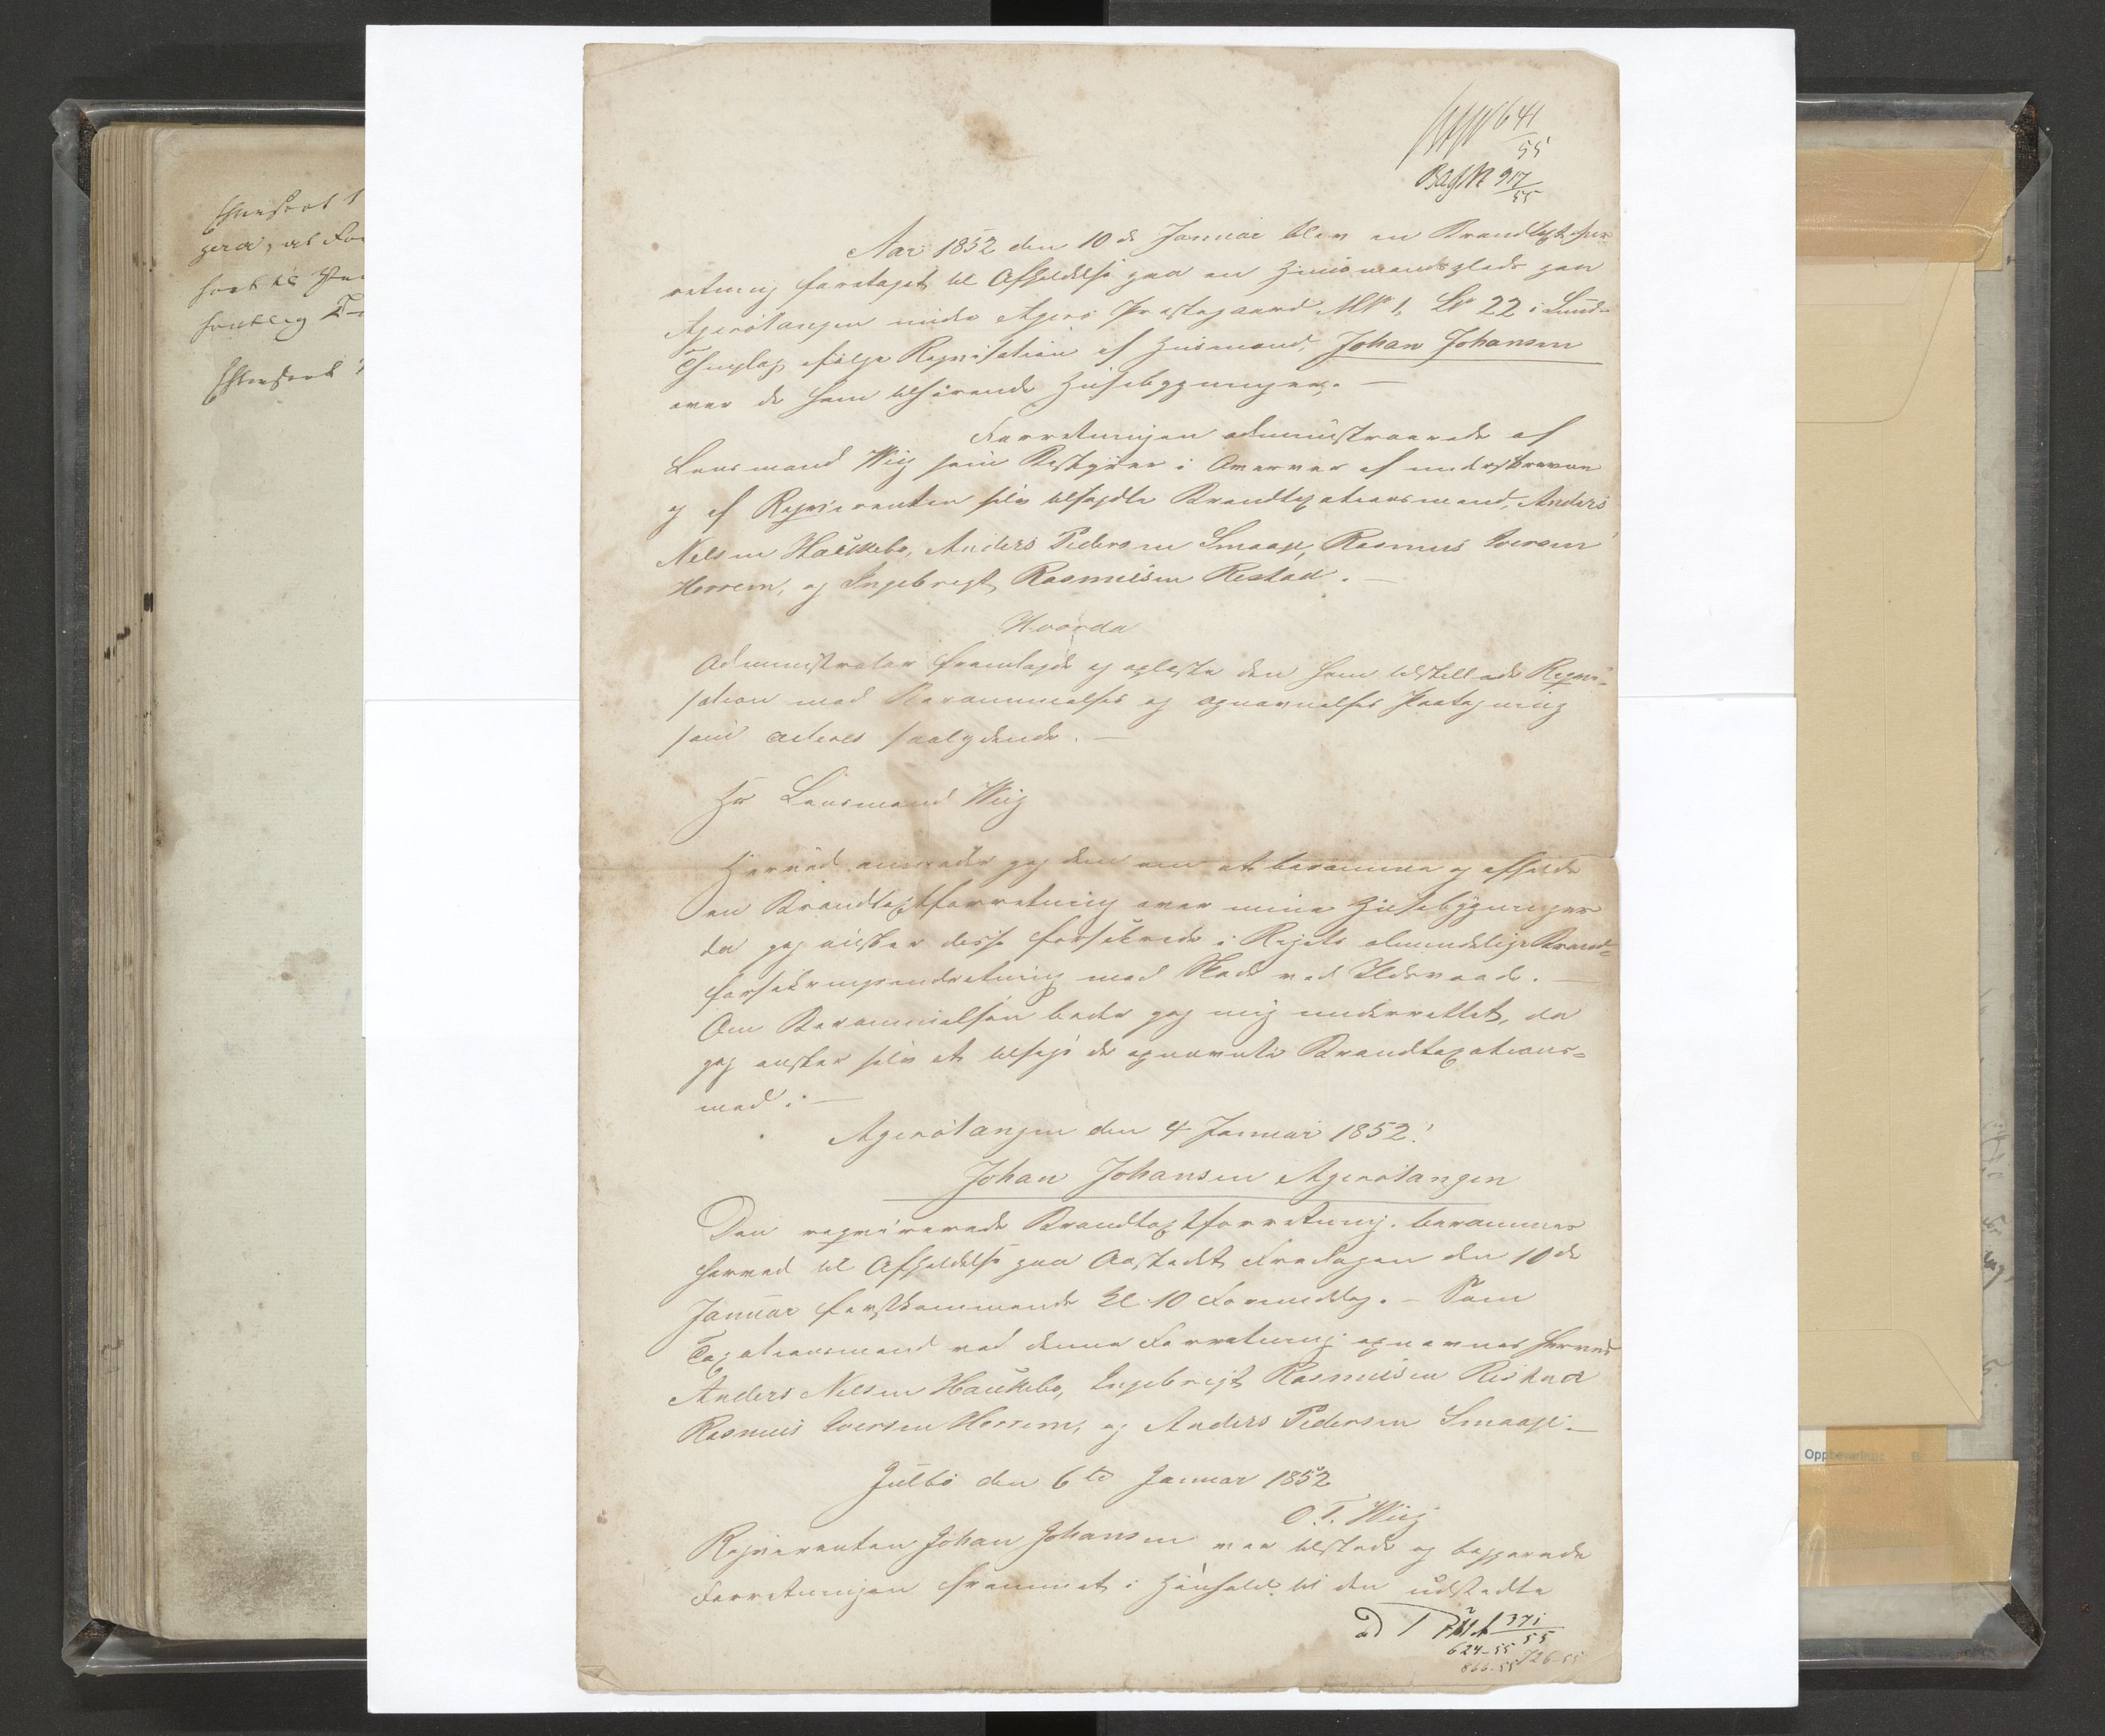 641
55
917
55
Aar 1852 den 10de Januar blev en Brandtaxtfor-
retning foretaget til Afholdelse paa en Huusmandsplads paa
Agerøtangen under Agerø Præstegaard MNo 1, LNo 22 i Sund-
Thinglag ifølge Reqvisition af Huusmand, Johan Johansen
over de ham tilhørende Huusebygninger. —
Forretningen administrerede af
Lensmand Wiig som Bestyrer i Overvær af underskrevne
og af Reqvirenten selv tilsagdte Brandtaxationsmænd, Anders
Nilsen Haukebø, Anders Pedersen Smaage, Rasmus Iversen
Horrem, og Ingebrigt Rasmusen Ristad. —
Hvorda
Administrator fremlagde og oplæste den ham tilstillede Reqvi-
sition med Berammelses og opnævnelses Paategning
som acteres saalydende. —
Hr Lensmand Wiig
Herved anmoder jeg dem om at beramme og afholde
en Brandtaxtforretning over mine Huusebygninger
da jeg ønsker disse forsikrede i Rigets almindelige Brand-
forsikringsindretning mod Skade ved Ildsvaade. —
Om Berammelsen beder jeg mig underrettet, da
jeg ønsker selv at tilsige de opnævnte Brandtaxations-
mænd. —
Agerøtangen den 4 Januar 1852.
Johan Johansen Agerøtangen
Den reqvirerede Brandtaxtforretning berammes
herved til Afholdelse paa Aastedet Fredagen den 10de
Januar førstkommende Kl 10 Formiddag. — Som
Taxationsmænd ved denne Forretning opnævnes herved
Anders Nilsen Haukebø, Ingebrigt Rasmusen Ristad
Rasmus Iversen Horrem, og Anders Pedersen Smaage. —
Julbø den 6te Januar 1852
O. T. Wiig
Reqvirenten Johan Johansen var tilstede og begjærede
Forretningen fremmet i Henhold til den udstedte
371
55
624-55
866-55 726-55